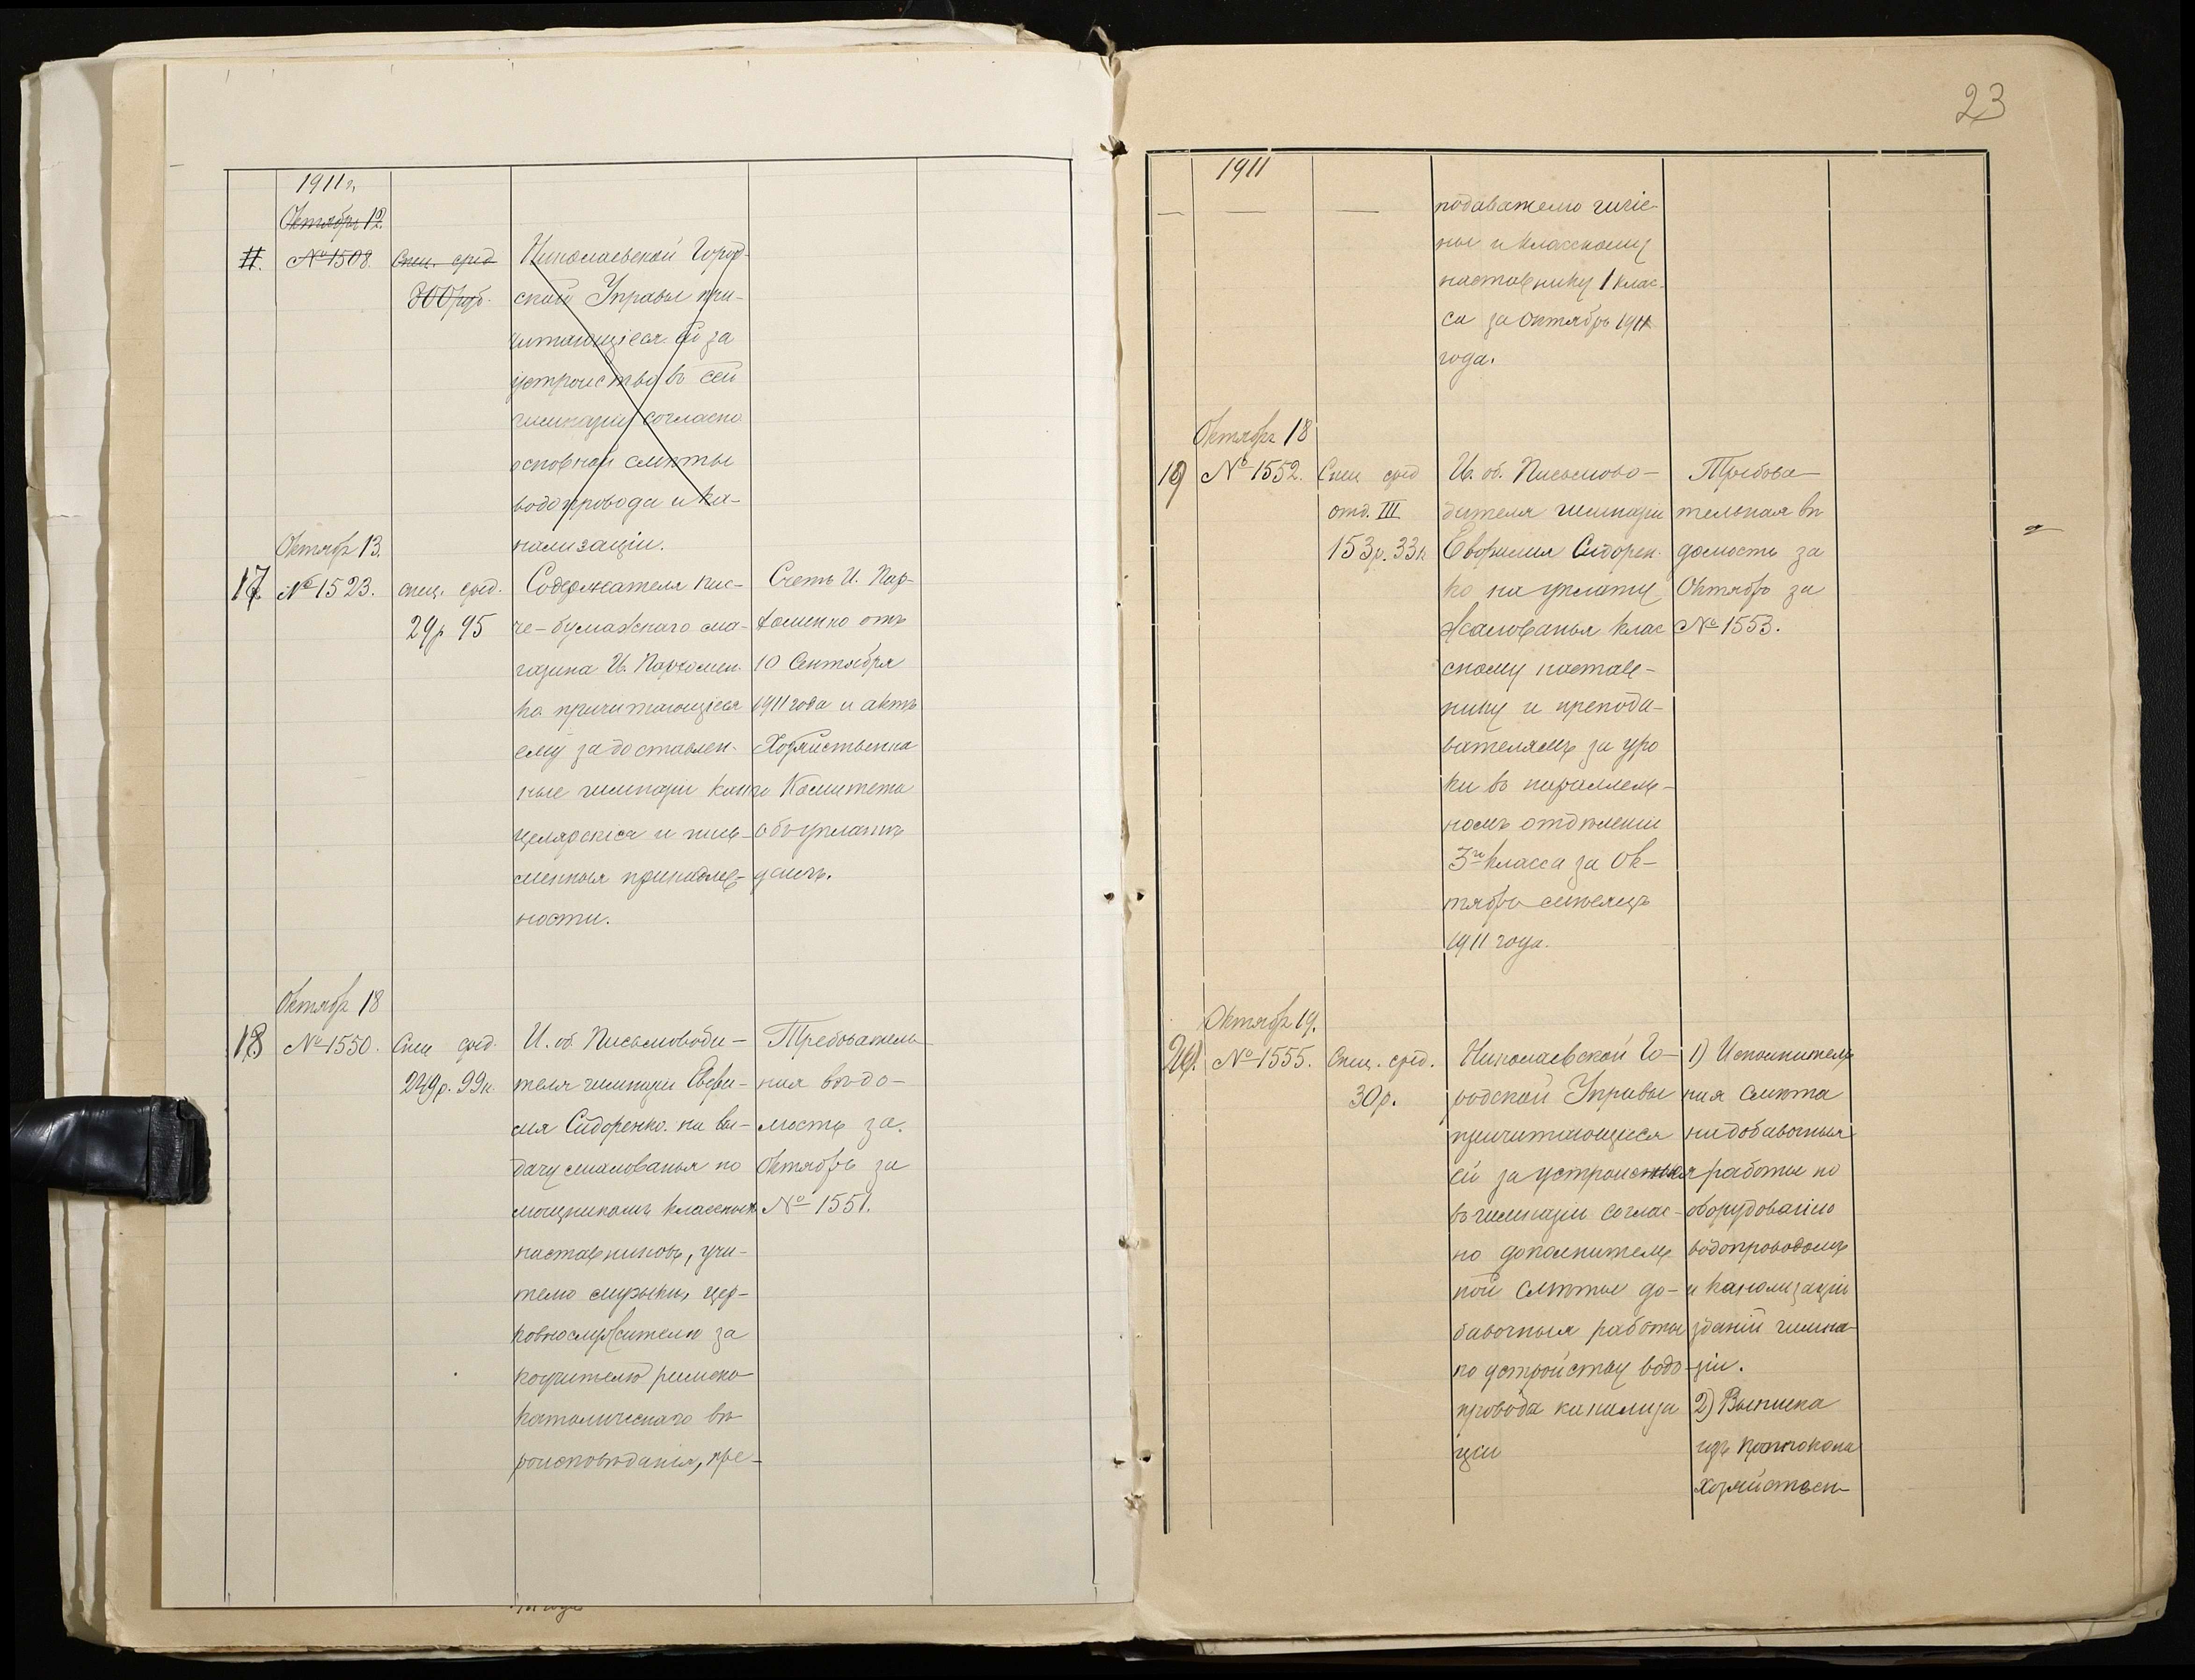 1911 г.
Октября 12.
№ 1508. Спец. сред. Николаевской Город-
300 руб. ской Управы при-
читающіеся ей за
устройство въ сей
гимназіи согласно
основной смѣты
водопровода и ка-
нализаціи.
Октябр 13.
17. № 1523. спец. сред. Содержателя пис-
29 р 95 че-бумажнаго ма-
газина И. Пархомен-
ко причитающіеся
ему за доставлен-
ные гимназіи кан-
целярскія и пись-
менныя принадлеж-
ности.
Счетъ И. Пар-
хоменко отъ
10 Сентября
1911 года и актъ
Хозяйственна
го Комитета
объ уплатѣ
денегъ.
Октябр 18
18 № 1550. Спец сред. И. об. Письмоводи-
249 р. 99 к. теля гимназіи Евфи-
мія Сидоренко. на вы-
дачу жалованья по
мощникамъ классныхъ
наставниковъ, учи-
телю музыки, цер-
ковнослужителю за
коучителю римско
католическаго вѣ
роисповѣданія, пре-
Требователь
ная вѣдо-
мость за
Октябрь за
№ 1551.
23
1911
подавателю гигіе-
ны и классному
наставнику 1 клас-
са за Октябрь 1911
года.
Октябр 18
19 № 1552. Спец сред И. об. Письмово-
отд. III дителя гимназіи
153 р. 33 к Евфимія Сидорен-
ко на уплату
Жалованья клас
сному настав-
нику и препода-
вателямъ за уро
ки въ параллель-
номъ отдѣленіи
3го класса за Ок-
тябрь мѣсяцъ
1911 года.
Требова-
тельная вѣ
домость за
Октябрь за
№ 1553.
Октябр 19.
20. № 1555. Спец. сред. Николаевской Го-
30 р. родской Управы
причитающиеся
ей за
въ гимназіи соглас-
но дополнитель
ной смѣты до-
бавочныя работы
по устройству водо-
провода канализа
ціи
1) Исполнитель
ная смѣта
на добавочныя
работы по
оборудованію
водопроводомъ
и канализаціи
зданій гимна-
зіи.
2) Выписка
изъ протокола
Хозяйствен-